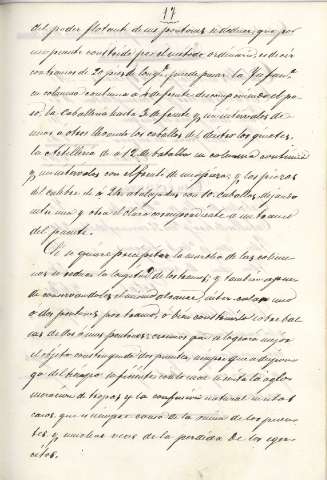 17
del poder flotante de sus pontones se deduce, que por
un puente construido por el método ordinario, es decir
con tramos de 20 pies de long.ᵈ puede pasar la Ynfan.ᵃ
en columna continua a 4 de frente descomponiendo el pa-
so, la Caballeria hasta 3 de frente y sin intervalos de
unos a otros llevando los caballos del diestro los ginetes,
la Artilleria de a 12 de batalla en columna continua
y sin intervalos con el frente de una pieza, y las piezas
del calibre de a 24 atalajadas con 10 caballos dejando
entre una y otra el claro correspondiente a un tramo
del puente.
Si se quiere precipitar la marcha de las colum-
nas se reduce la longitud de los tramos, y tambien a pesar
de conservandoles el mismo alcance, entra cada uno
o dos pontones por tramo, o bien construirlo sobre bal-
sas de dos a mas pontones; creemos que se logrará mejor
el objeto construyendo dos puentes, siempre que se disponga
del tiempo suficiente con lo cual se evita la aglo-
meracion de tropas y la confusion natural en estos
casos, que es siempre causa de la ruina de los puen-
tes y muchas veces de la perdida de los ejer-
citos.